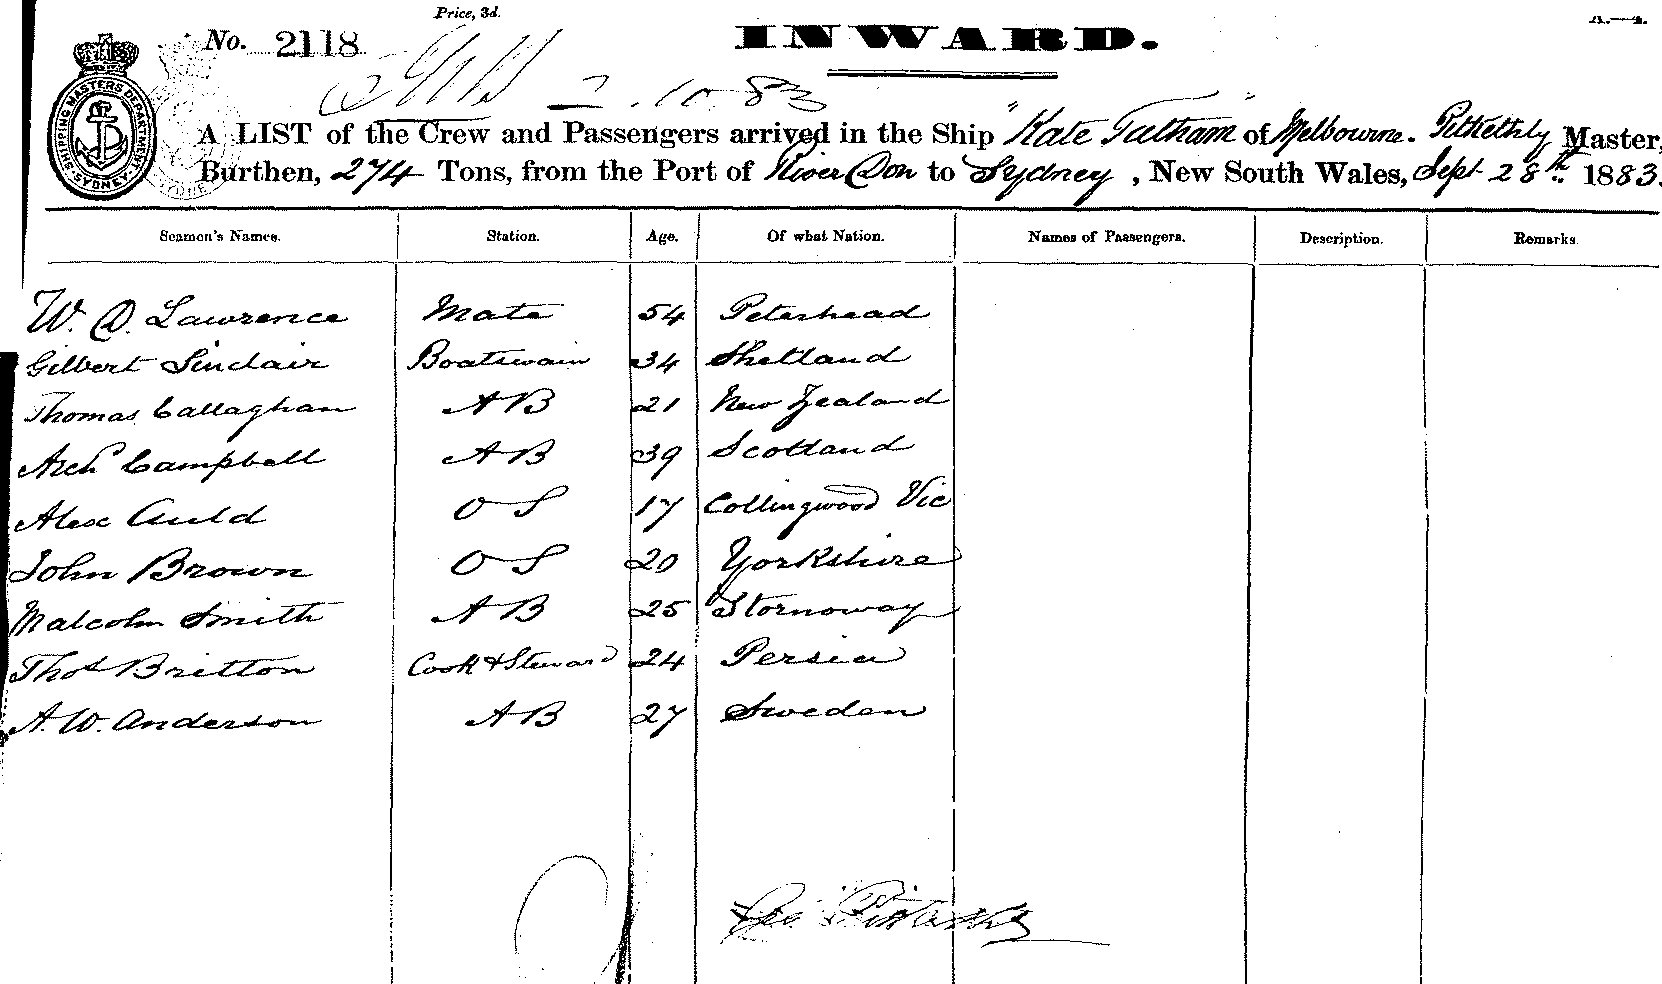 Price, 3d.
No. 2118
INWARD.
2.10.83
SHIPPING MASTERS DEPARTMENT SYDNEY
A LIST of the Crew and Passengers arrived in the Ship "Kate Tatham" of Melbourne. Pitkethly Master,
Burthen, 274 Tons, from the Port of River Don to Sydney, New South Wales, Sept 28th 1883.
Seamen's Names. Station. Age. Of what Nation. Names of Passengers. Description. Remarks.
W. D. Lawrence Mate 54 Peterhead
Gilbert Sinclair Boatswain 34 Shetland
Thomas Callaghan A B 21 New Zealand
Archd Campbell A B 39 Scotland
Alex Auld O S 17 Collingwood Vic
John Brown O S 20 Yorkshire
Malcolm Smith A B 25 Stornoway
Thos Britton Cook & Steward 24 Persia
A. W. Anderson A B 27 Sweden
Geo. Pitkethly